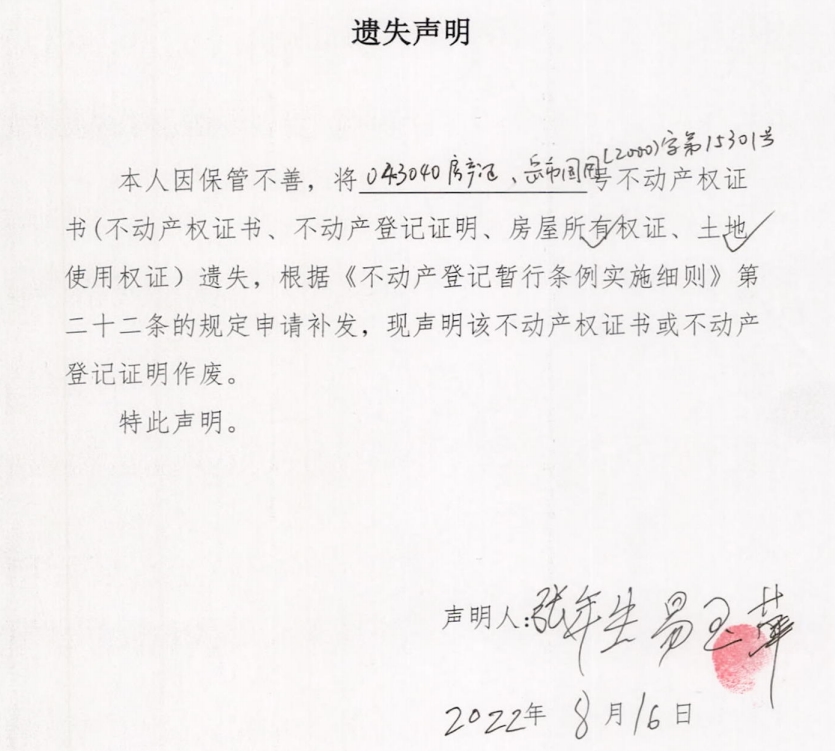 遗失声明
本人因保管不善，将043040房产证、岳市国用(2000)字第15301号号不动产权证
书(不动产权证书、不动产登记证明、房屋所有权证、土地
使用权证）遗失，根据《不动产登记暂行条例实施细则》第
二十二条的规定申请补发，现声明该不动产权证书或不动产
登记证明作废。
特此声明。
声明人:张年生 易玉萍
2022年 8月16日